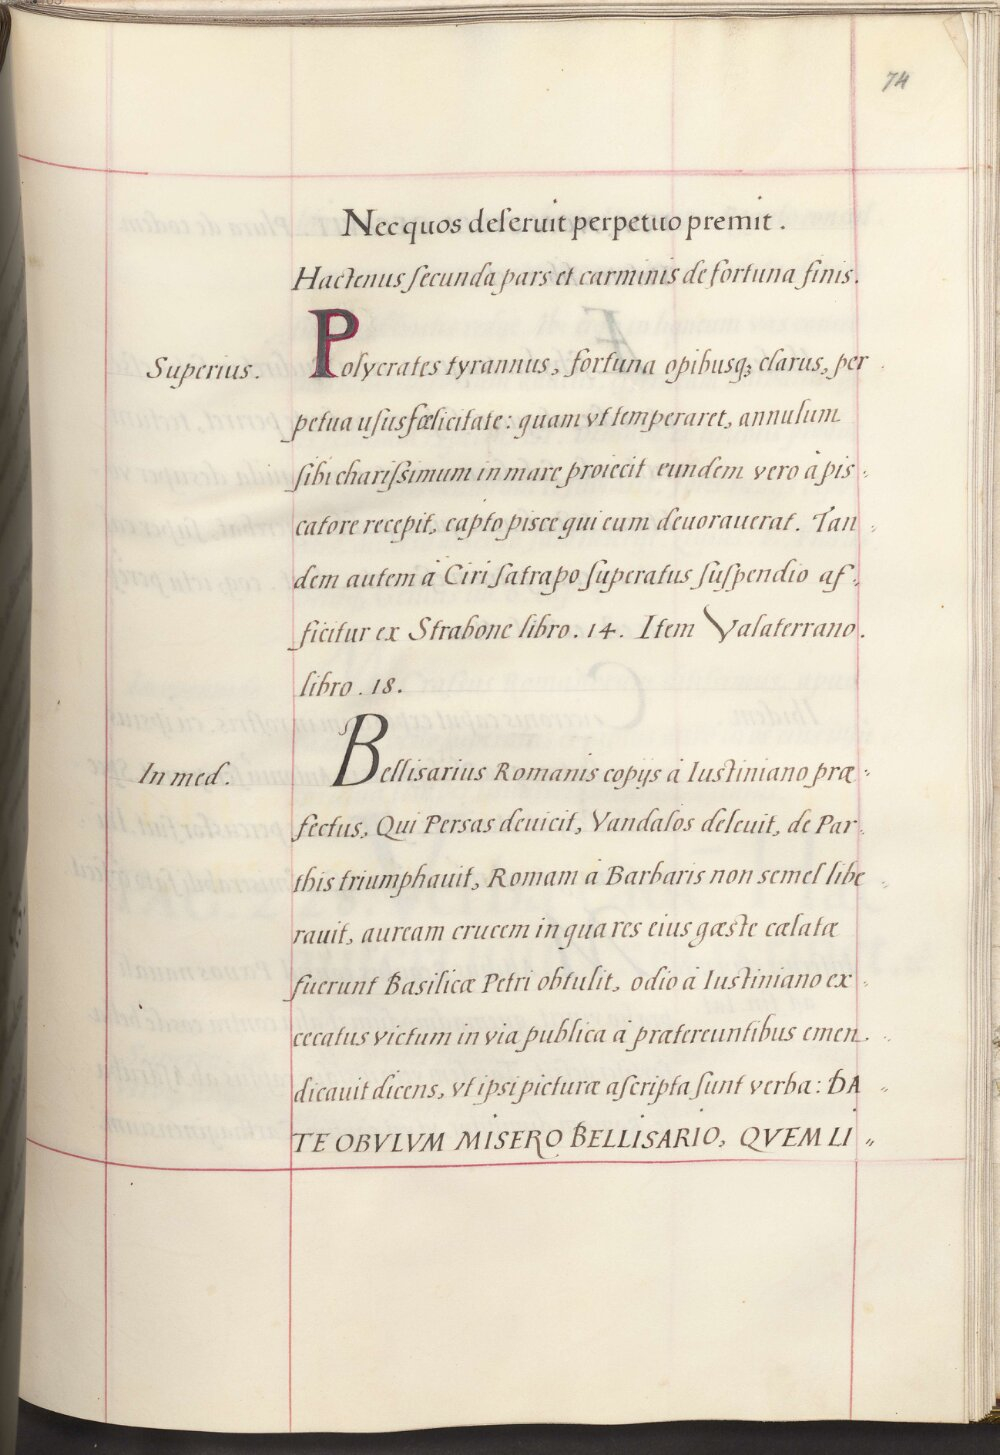 74
Nec quos deſeruit perpetuo premit.
Hactenus ſecunda pars et carminis de fortuna finis.
Superius.
Polycrates tyrannus, fortuna opibusqꝫ clarus, per
petua uſus fœlicitate: quam vt temperaret, annulum
ſibi chariſsimum in mare proiecit eundem vero à pis-
catore recepit, capto pisce qui eum deuorauerat. Tan-
dem autem à Ciri ſatrapo ſuperatus ſuſpendio af-
ficitur ex Strabone libro. 14. Item Valaterrano.
libro. 18.
In med.
Bellisarius Romanis copijs à Iustiniano præ-
fectus, Qui Persas deuicit, Vandalos deleuit, de Par-
this triumphauit, Romam à Barbaris non semel libe-
rauit, auream crucem in qua res eius gæste cælatæ
fuerunt Basilicæ Petri obtulit, odio à Iustiniano ex-
cecatus victum in via publica à prætereuntibus emen-
dicauit dicens, vt ipsi picturæ aſcripta ſunt verba: DA-
TE OBVLVM MISERO BELLISARIO, QVEM LI-